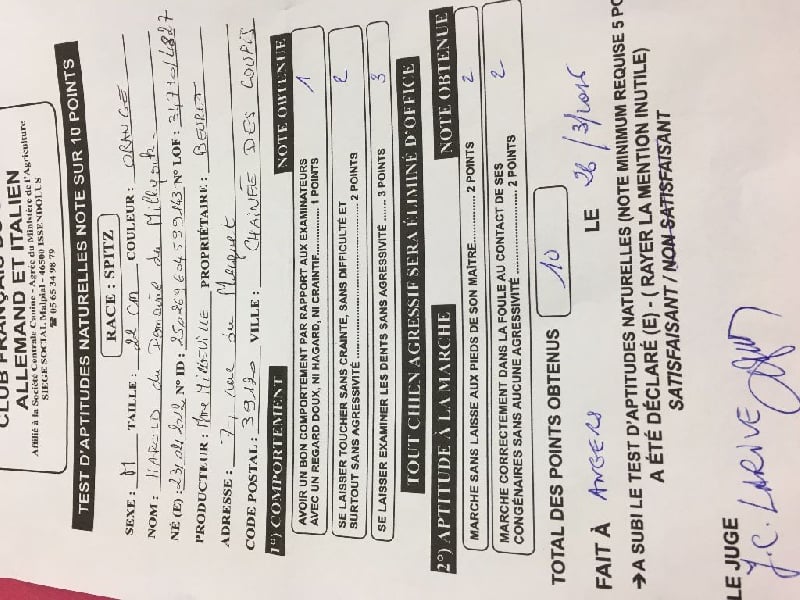 CLUB FRANÇAIS DU
ALLEMAND ET ITALIEN
Affilié à la Société Centrale Canine - Agrée du Ministère de l'Agriculture
SIEGE SOCIAL Malpial - 46500 ISSENDOLUS
☎ 05 65 34 98 79
TEST D'APTITUDES NATURELLES NOTE SUR 10 POINTS
RACE : SPITZ
SEXE : M TAILLE : 20 cm COULEUR : ORANGE
NOM : du Domaine du
NÉ (E) : N° ID : N° LOF :
PRODUCTEUR : Mme PROPRIÉTAIRE :
ADRESSE : 7, rue du
CODE POSTAL : 39120 VILLE : CHAINÉE DES COUPIS
1°) COMPORTEMENT NOTE OBTENUE
AVOIR UN BON COMPORTEMENT PAR RAPPORT AUX EXAMINATEURS
AVEC UN REGARD DOUX, NI HAGARD, NI CRAINTIF............ 1 POINTS 1
SE LAISSER TOUCHER SANS CRAINTE, SANS DIFFICULTÉ ET
SURTOUT SANS AGRESSIVITÉ ................................ 2 POINTS 2
SE LAISSER EXAMINER LES DENTS SANS AGRESSIVITÉ ...... 3 POINTS 3
TOUT CHIEN AGRESSIF SERA ÉLIMINÉ D'OFFICE
2°) APTITUDE À LA MARCHE NOTE OBTENUE
MARCHE SANS LAISSE AUX PIEDS DE SON MAÎTRE............. 2 POINTS 2
MARCHE CORRECTEMENT DANS LA FOULE AU CONTACT DE SES
CONGÉNAIRES SANS AUCUNE AGRESSIVITÉ ................... 2 POINTS 2
TOTAL DES POINTS OBTENUS 10
FAIT À ANGERS LE
➔A SUBI LE TEST D'APTITUDES NATURELLES (NOTE MINIMUM REQUISE 5 PO
A ÉTÉ DÉCLARÉ (E) - ( RAYER LA MENTION INUTILE)
SATISFAISANT / NON SATISFAISANT
LE JUGE
J.C. LARIVE